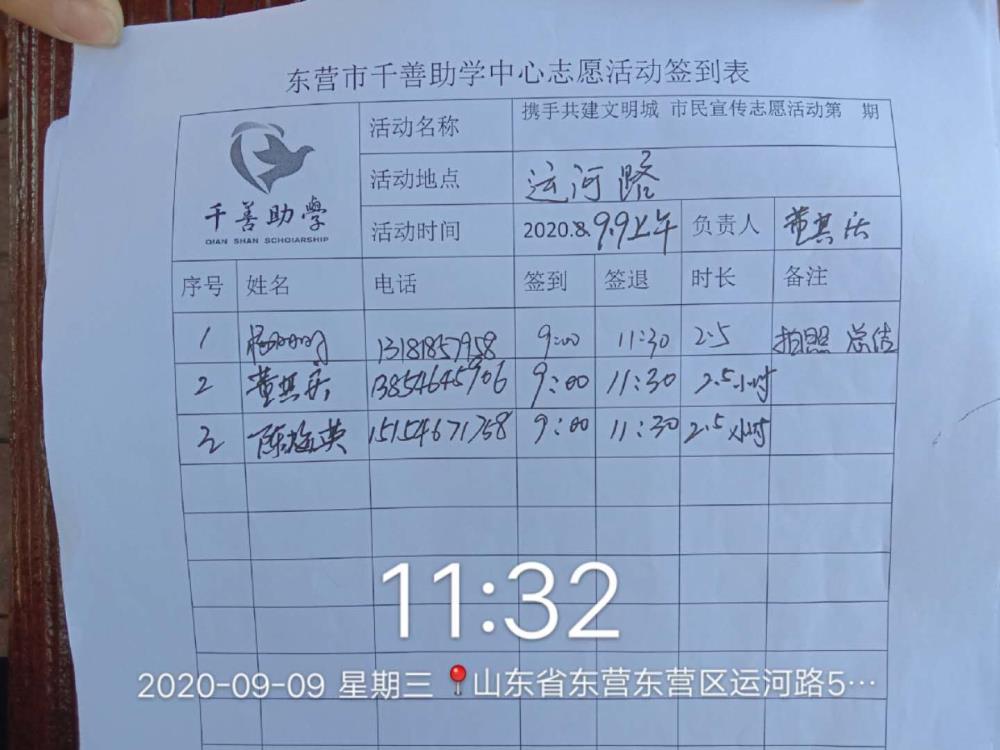 东营市千善助学中心志愿活动签到表
千善助學
QIAN SHAN SCHOIARSHIP
活动名称 携手共建文明城 市民宣传志愿活动第 期
活动地点 运河路
活动时间 2020.8.9.9上午 负责人 董其
序号 姓名 电话 签到 签退 时长 备注
1 13181857958 9:00 11:30 2.5 拍照 总结
2 董其 13854645906 9:00 11:30 2.5小时
3 陈梅英 15154671758 9:00 11:30 2.5小时
11:32
2020-09-09 星期三 山东省东营东营区运河路5…